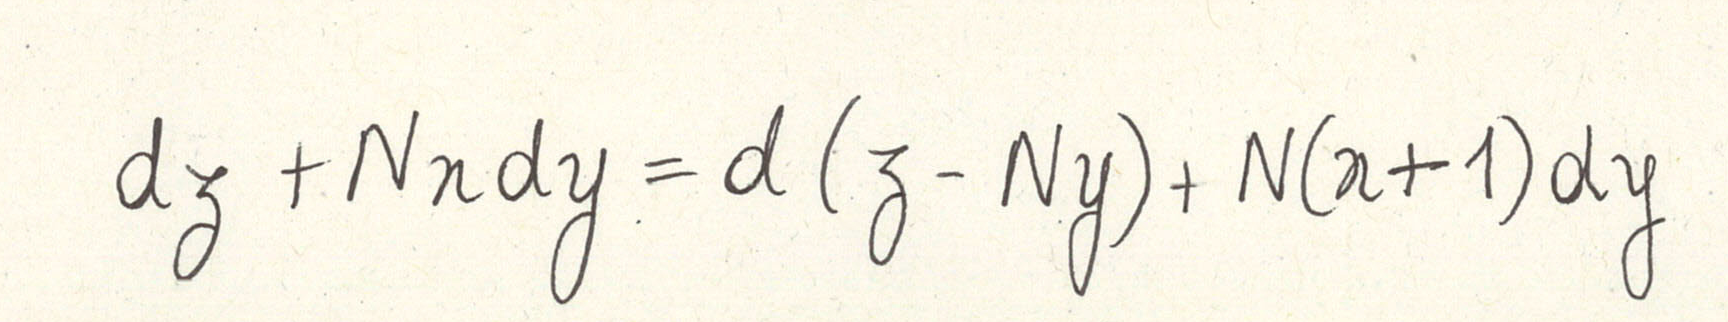 dz + Nxdy = d(z - Ny) + N(x+1)dy